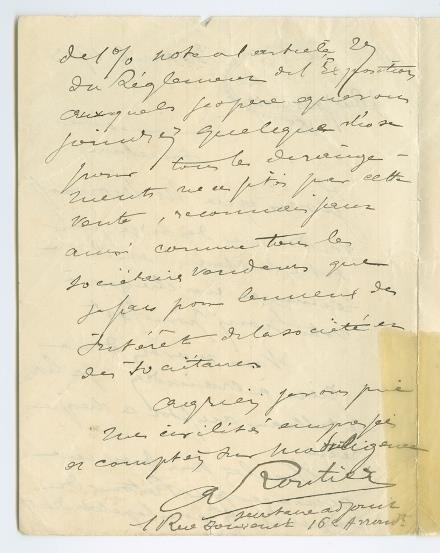 de 1% noté a l'article 29
du Réglement de l'Exposition
auxquels j'espere que vous
joindrez quelque chose
pour tous les derange-
ments necessités par cette
vente, reconnaissant
ainsi comme tous les
sociétaires vendeurs que
je fais pour le mieux des
intérêts de la société et
des sociétaires
agréez je vous prie
mes civilités empressées
et comptez sur ma diligence
A Routier
secretaire adjoint
1 Rue Jouvenet 16e Arrondt